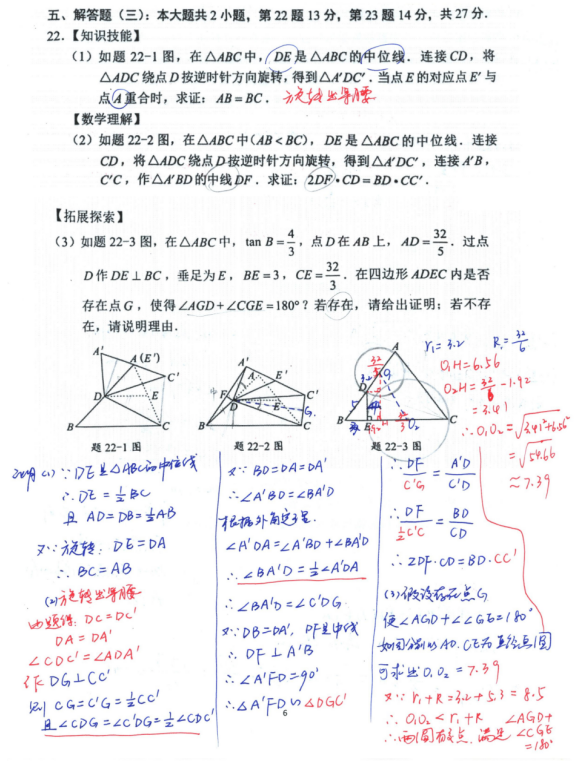 五、解答题（三）：本大题共2小题，第22题13分，第23题14分，共27分．
22．【知识技能】
（1）如题22-1图，在△ABC中，DE是△ABC的中位线．连接CD，将
△ADC绕点D按逆时针方向旋转，得到△A′DC′．当点E的对应点E′与
点A重合时，求证：AB=BC．
旋转出等腰
【数学理解】
（2）如题22-2图，在△ABC中(AB<BC)，DE是△ABC的中位线．连接
CD，将△ADC绕点D按逆时针方向旋转，得到△A′DC′，连接A′B，
C′C，作△A′BD的中线DF．求证：2DF·CD=BD·CC′．
【拓展探索】
（3）如题22-3图，在△ABC中，tan B=4/3，点D在AB上，AD=32/5．过点
D作DE⊥BC，垂足为E，BE=3，CE=32/3．在四边形ADEC内是否
存在点G，使得∠AGD+∠CGE=180°？若存在，请给出证明；若不存
在，请说明理由．
A′ A(E′) C′ D E B C
题22-1图
A′ A E′ C′ F D E G B C
题22-2图
A D B E C O₂
题22-3图
r₁=3.2 R₁=32/6
O₁H=6.56
O₂H=32/6-1.92
=3.41
∴O₁O₂=√3.41²+6.56²
=√54.66
≈7.39
证明(1)∵DE是△ABC的中位线
∴DE=½BC
且 AD=DB=½AB
又∵旋转，DE=DA
∴BC=AB
(2)旋转出等腰
由题得：DC=DC′
DA=DA′
∠CDC′=∠ADA′
作DG⊥CC′
则 CG=C′G=½CC′
且∠CDG=∠C′DG=½∠CDC′
又∵BD=DA=DA′
∴∠A′BD=∠BA′D
根据外角定理．
∠A′DA=∠A′BD+∠BA′D
∴∠BA′D=½∠A′DA
∴∠BA′D=∠C′DG
又∵DB=DA′，DF是中线
∴DF⊥A′B
∠A′FD=90°
∴△A′FD∽△DGC′
6
∴DF/C′G=A′D/C′D
∴DF/½C′C=BD/CD
∴2DF·CD=BD·CC′
(3)假设存在点G
使∠AGD+∠CGE=180°
如图分别以AD．CE为直径画圆
可求出O₁O₂=7.39
又∵r₁+R=3.2+5.3=8.5
∴O₁O₂<r₁+R
∴两圆有交点，满足
∠AGD+
∠CGE
=180°